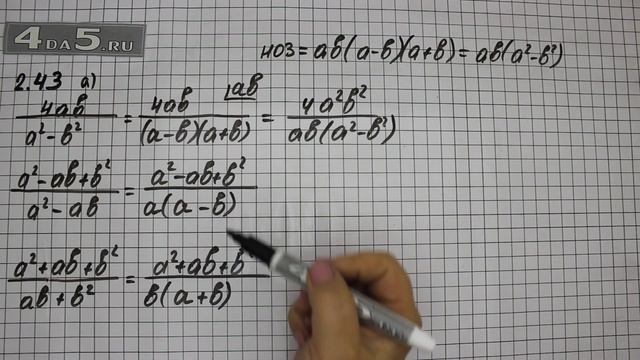 4DA5.RU
НОЗ = ab(a-b)(a+b) = ab(a²-b²)
2.43 a)
4ab/(a²-b²) = 4ab/((a-b)(a+b)) ⌊ab = 4a²b²/(ab(a²-b²))
(a²-ab+b²)/(a²-ab) = (a²-ab+b²)/(a(a-b))
(a²+ab+b²)/(ab+b²) = (a²+ab+b²)/(b(a+b))